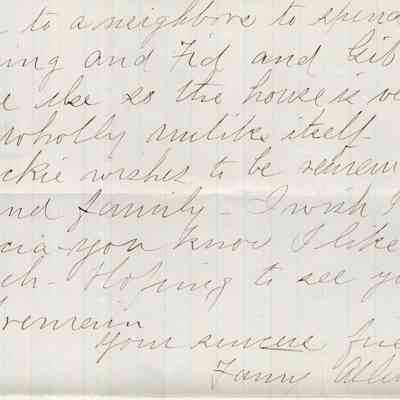 to a neighbors to spend
ing and Fid and Gib
else so the house is ve
wholly unlike itself
ckie wishes to be remem
and family - I wish I
cia - you know I like
ch - Hoping to see yo
I remain
Your sincere frie
Fanny Allen